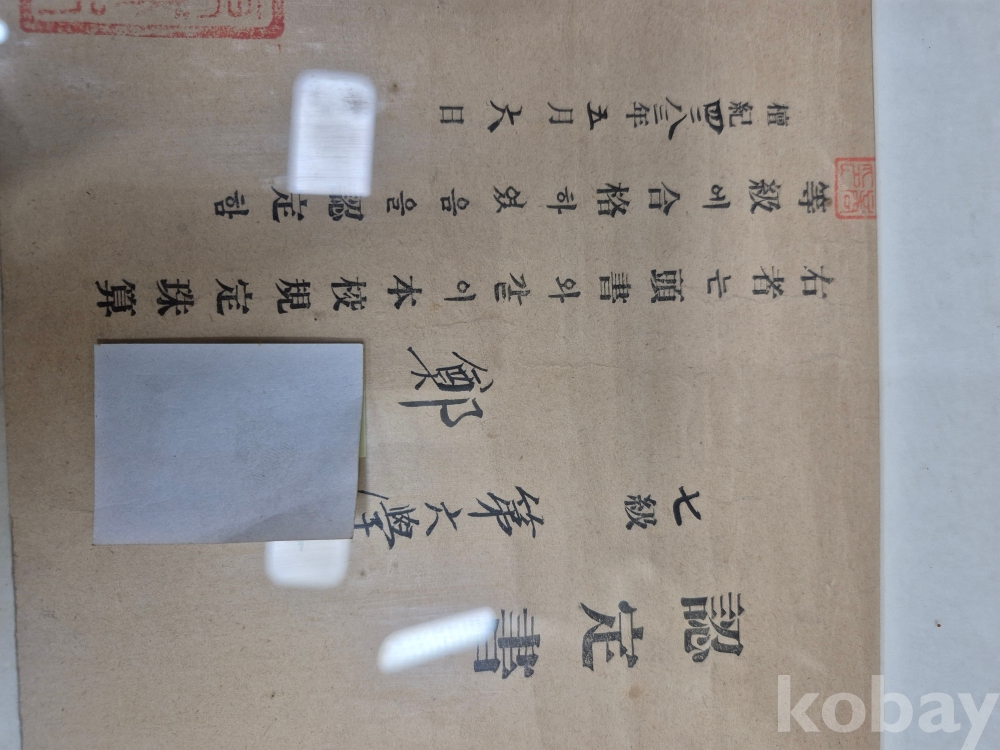 認定書
七級
第六學
鄭
右者는頭書와같이本校規定珠算
等級에合格하였음을認定함
檀紀四二八三年五月六日
kobay